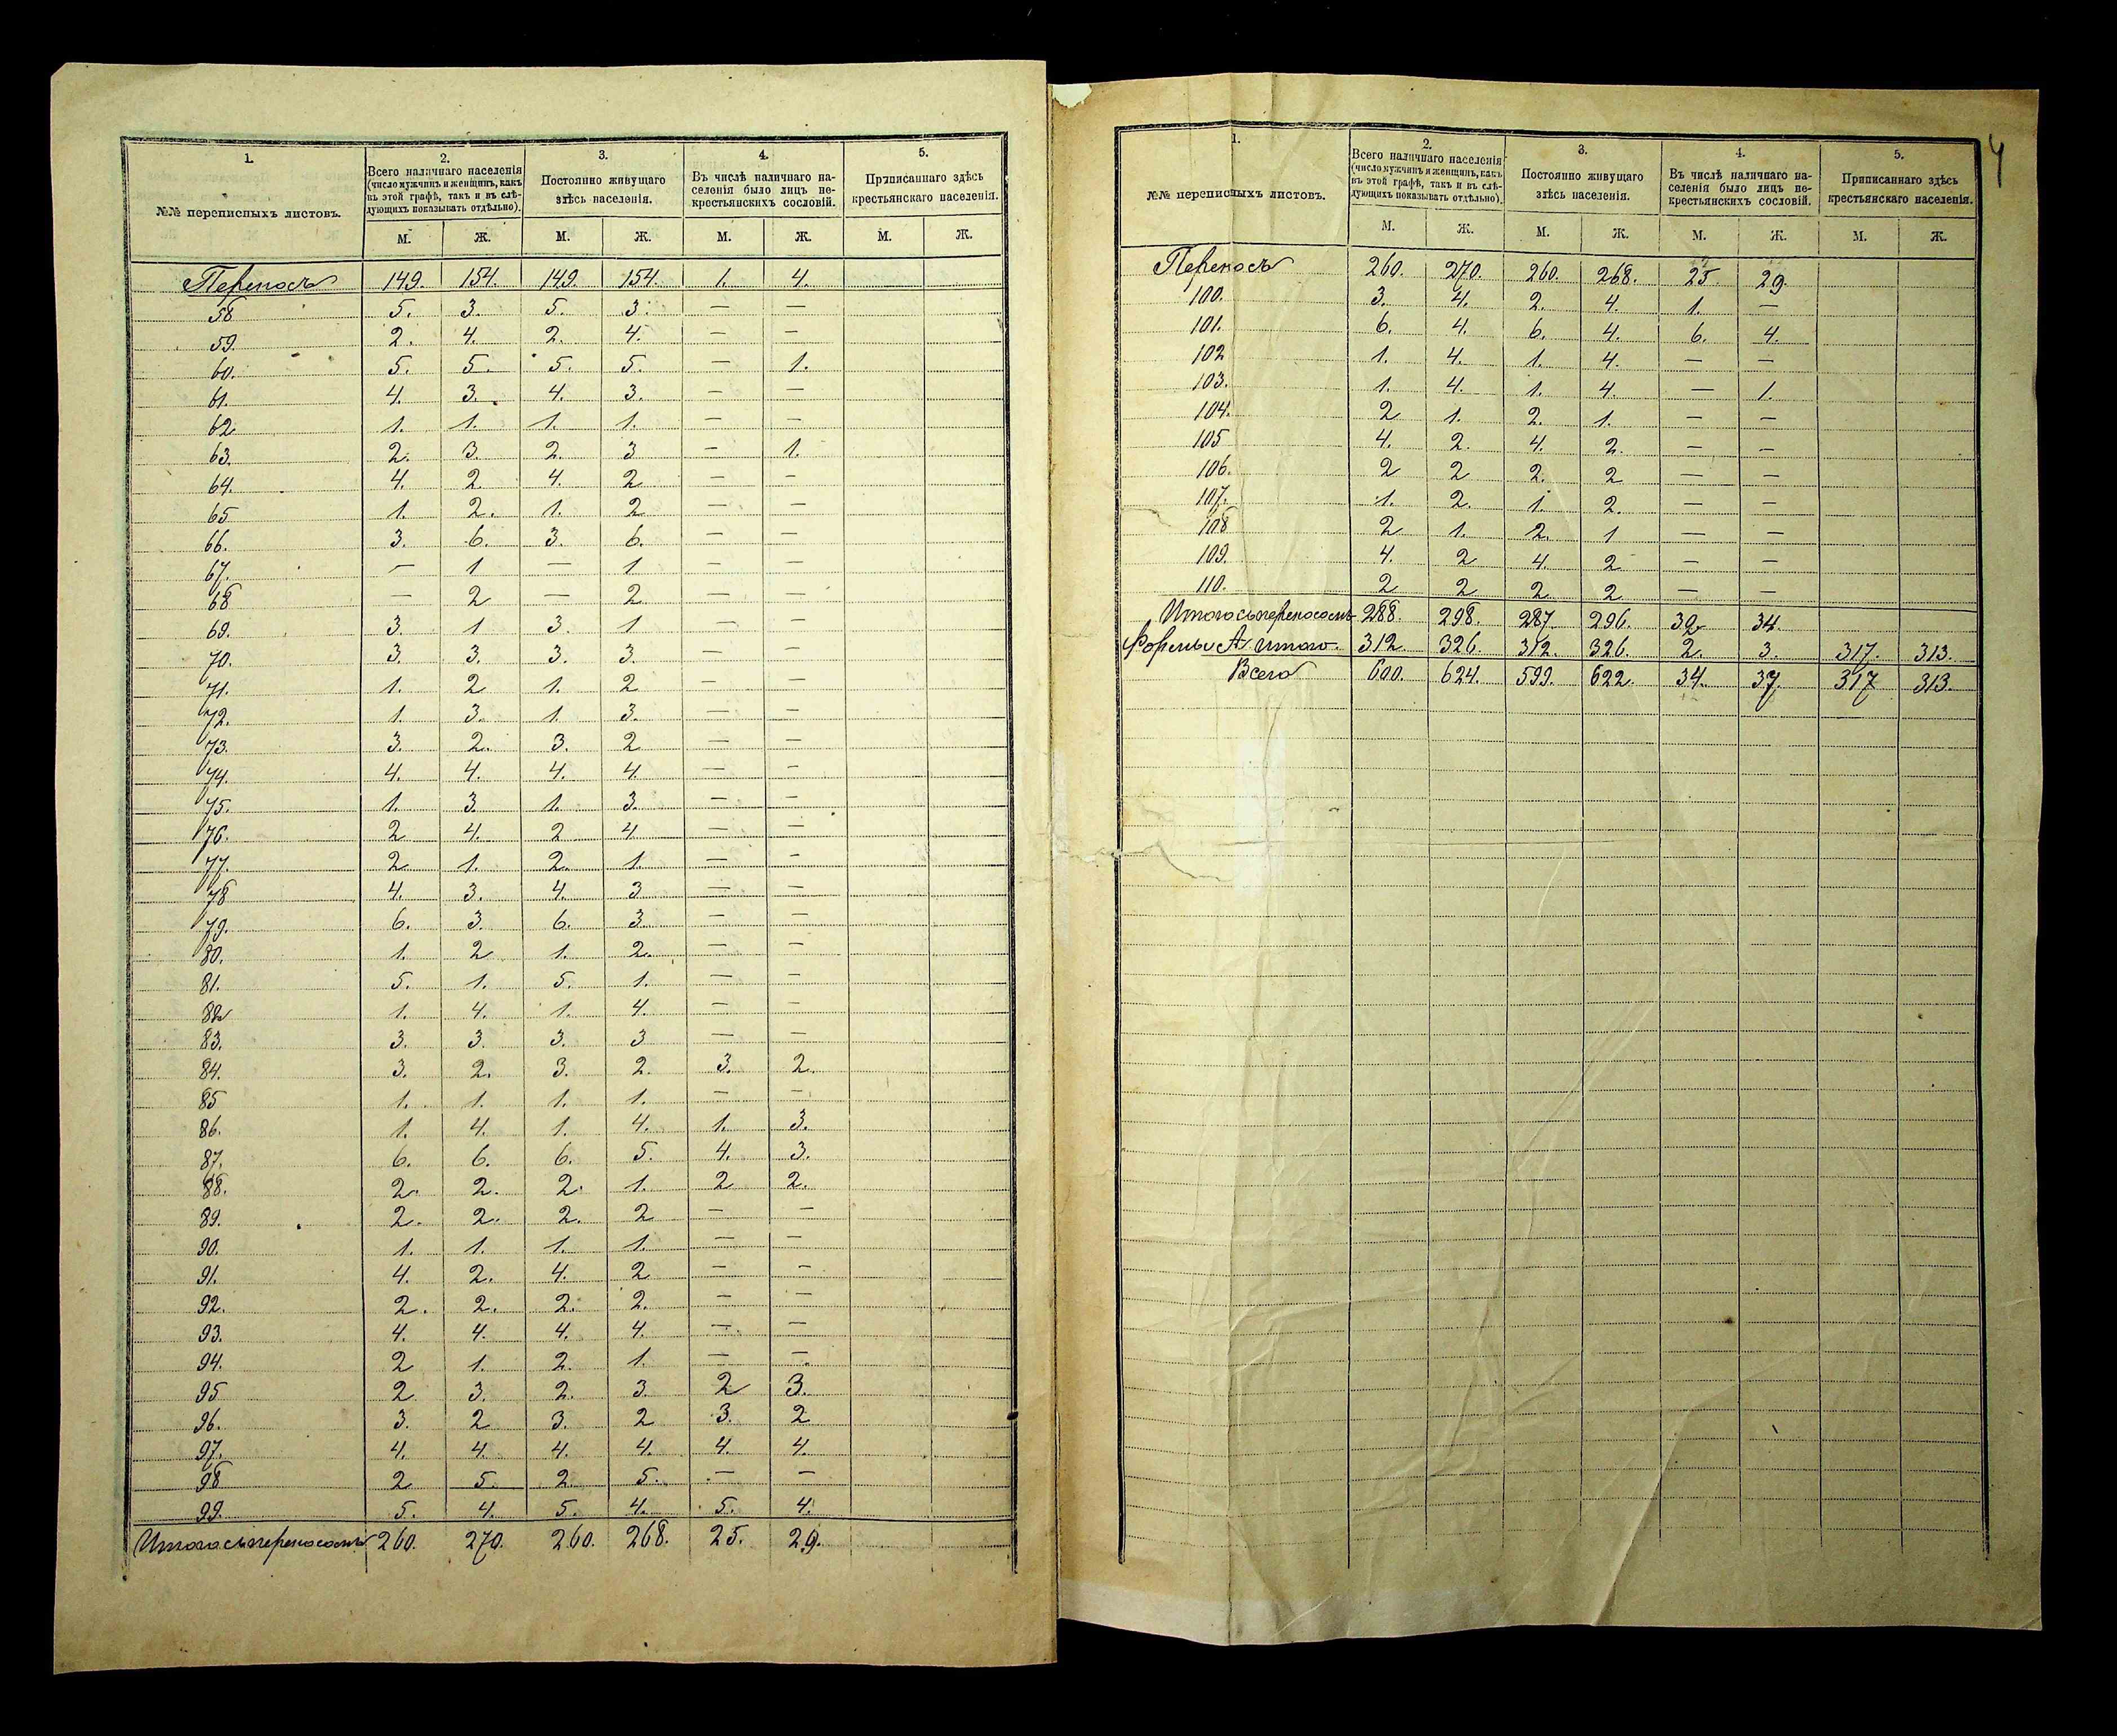 1. 2. 3. 4. 5.
№№ переписныхъ листовъ.
Всего наличнаго населенія (число мужчинъ и женщинъ, какъ въ этой графѣ, такъ и въ слѣдующихъ показывать отдѣльно).
Постоянно живущаго здѣсь населенія.
Въ числѣ наличнаго населенія было лицъ не-крестьянскихъ сословій.
Приписаннаго здѣсь крестьянскаго населенія.
М. Ж. М. Ж. М. Ж. М. Ж.
Переносъ 149. 154. 149. 154. 1. 4.
58 5. 3. 5. 3. — —
59. 2. 4. 2. 4. — —
60. 5. 5. 5. 5. — 1.
61. 4. 3. 4. 3. — —
62 1. 1. 1. 1. — —
63. 2. 3. 2. 3 — 1.
64. 4. 2. 4. 2 — —
65 1. 2. 1. 2 — —
66. 3. 6. 3. 6. — —
67. — 1 — 1 — —
68 — 2 — 2 — —
69. 3. 1 3. 1 — —
70. 3. 3. 3. 3. — —
71. 1. 2 1. 2 — —
72. 1. 3. 1. 3. — —
73. 3. 2. 3. 2 — —
74. 4. 4. 4. 4. — —
75. 1. 3 1. 3. — —
76. 2 4. 2 4 — —
77. 2 1. 2. 1. — —
78 4. 3. 4. 3 — —
79. 6. 3. 6. 3 — —
80. 1. 2 1. 2. — —
81. 5. 1. 5. 1. — —
82 1. 4. 1. 4. — —
83. 3. 3. 3. 3 — —
84. 3. 2. 3. 2. 3. 2.
85 1. 1. 1. 1. — —
86. 1. 4. 1. 4. 1. 3.
87. 6. 6. 6. 5. 4. 3.
88. 2. 2. 2. 1. 2 2.
89. 2. 2. 2. 2 — —
90. 1. 1. 1. 1. — —
91. 4. 2. 4. 2 — —
92. 2. 2. 2. 2. — —
93. 4. 4. 4. 4. — —
94. 2 1. 2. 1. — —
95 2 3. 2. 3. 2 3.
96. 3. 2 3. 2 3. 2
97. 4. 4. 4. 4. 4. 4.
98 2 5. 2. 5. — —
99. 5. 4. 5. 4. 5. 4.
Итого съ переносомъ 260. 270. 260. 268. 25. 29.
4
1. 2. 3. 4. 5.
№№ переписныхъ листовъ.
Всего наличнаго населенія (число мужчинъ и женщинъ, какъ въ этой графѣ, такъ и въ слѣдующихъ показывать отдѣльно).
Постоянно живущаго здѣсь населенія.
Въ числѣ наличнаго населенія было лицъ не-крестьянскихъ сословій.
Приписаннаго здѣсь крестьянскаго населенія.
М. Ж. М. Ж. М. Ж. М. Ж.
Переносъ 260. 270. 260. 268. 25. 29.
100. 3. 4. 2. 4. 1. —
101. 6. 4. 6. 4. 6. 4.
102 1. 4. 1. 4. — —
103. 1. 4. 1. 4. — 1.
104. 2 1. 2. 1. — —
105 4. 2. 4. 2. — —
106. 2 2 2. 2 — —
107. 1. 2. 1. 2. — —
108 2 1. 2. 1 — —
109. 4. 2 4. 2 — —
110. 2 2 2 2 — —
Итого съ переносомъ 288. 298. 287. 296. 32. 34.
Формы А итого 312. 326. 312. 326. 2. 3. 317. 313.
Всего 600. 624. 599. 622. 34. 37. 317 313.